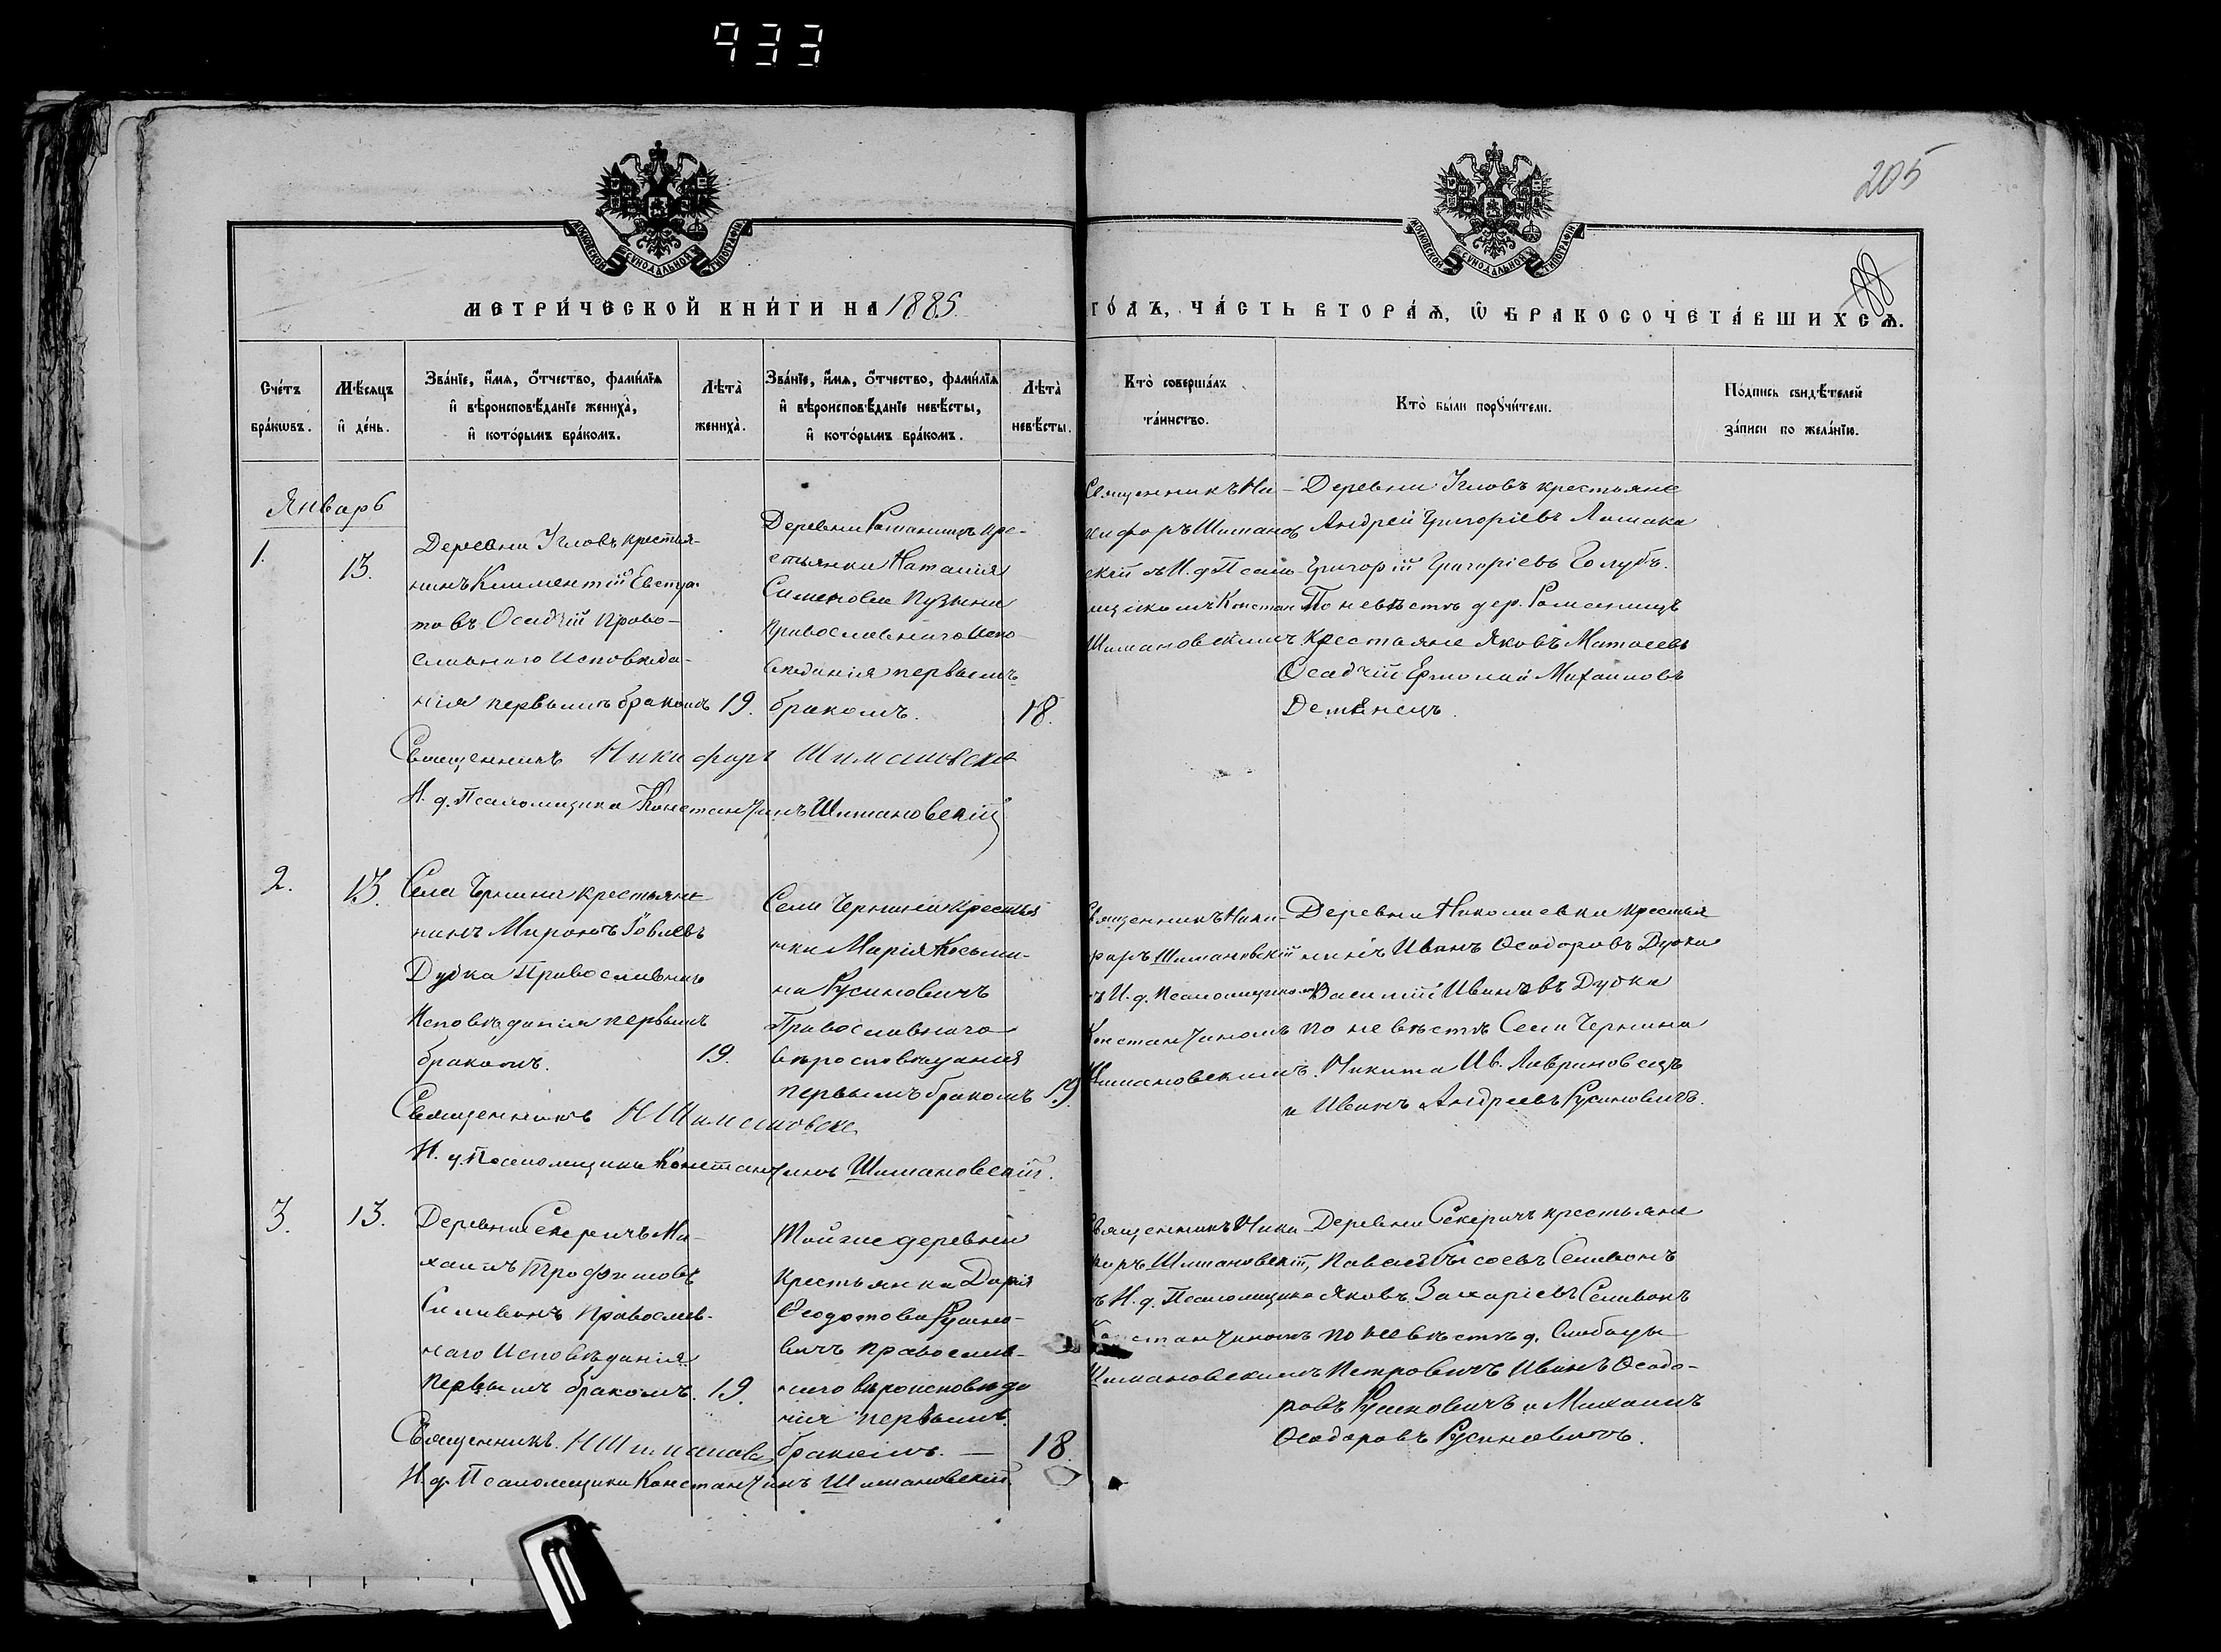 933
205
88
МОСКОВСКОЙ СѴНОДАЛЬНОЙ ТИПОГРАФІИ
МОСКОВСКОЙ СѴНОДАЛЬНОЙ ТИПОГРАФІИ
МЕТРИ́ЧЕСКОЙ КНИ́ГИ НА 1885
ГО́ДЪ, ЧА́СТЬ ВТОРА́Ѧ, Ѡ҆ БРАКОСОЧЕТА́ВШИХСѦ.
Сче́тъ
бра́кѡвъ.
Мѣ́сяцъ
и҆ де́нь.
Зва́нїе, и҆́мѧ, ѻ҆́тчество, фами́лїѧ
и҆ вѣроисповѣ́данїе жениха̀,
и҆ кото́рымъ бра́комъ.
Лѣ́та̀
жениха̀.
Зва́нїе, и҆́мѧ, ѻ҆́тчество, фами́лїѧ
и҆ вѣроисповѣ́данїе невѣ́сты,
и҆ кото́рымъ бра́комъ.
Лѣ́та̀
невѣ́сты.
Кто̀ соверша́лъ
та́инство.
Кто̀ бы́ли порꙋчи́тели.
По́дпись свидѣ́телей
за́писи по жела́нїю.
Январь
1.
13.
Деревни Угловъ крестья-
нинъ Климентій Евстра
товъ Осадчій Право-
славнаго Исповѣда-
нія первымъ бракомъ
19.
Деревни Романищъ кре-
стьянка Наталія
Симеонова Пузына
Православнаго Испо-
вѣданія первымъ
бракомъ.
18.
Священникъ Ни-
кифоръ Шиманов
скій съ И. д. Псало-
мщикомъ Констан
Шимановскимъ
Деревни Угловъ крестьяне
Андрей Григоріевъ Лашака
Григорій Григоріевъ Голубъ.
По невѣстѣ дер. Романищъ
Крестьяне Яковъ Матѳеевъ
Осадчій Ермолай Михаиловъ
Демянецъ.
Священникъ Никифоръ Шимановскі
И. д. Псаломщика Константинъ Шимановскій
2.
13.
Села Чернина крестьяни
нинъ Миронъ Іовлевъ
Дубка Православнаго
Исповѣданія первымъ
бракомъ.
19.
Села Чернина крестья
нка Марія Косьми-
на Русиновичъ
Православнаго
вѣросповѣданія
первымъ бракомъ
19.
Священникъ Ники-
форъ Шимановскій
съ И. д. Псаломщикомъ
Константиномъ
Шимановскимъ.
Деревни Николаевки крестья
нинъ Иванъ Ѳеодоровъ Дубка
Василій Ивановъ Дубка
по невѣстѣ Села Чернина
Никита Ив. Лавриновецъ
и Иванъ Андреевъ Русиновичъ.
Священникъ Н Шимановскі
И. д. Псаломщика Константинъ Шимановскій.
3.
13.
Деревни Секеричъ Ми-
хаилъ Трофимовъ
Селивонъ Православ-
наго Исповѣданія
первымъ бракомъ.
19.
Той же деревни
крестьянка Дарія
Ѳеодотова Русино-
вичъ православ-
наго вѣроисповѣда
нія первымъ
бракомъ. —
18.
Священникъ Ники
форъ Шимановскій,
съ И. д. Псаломщика
Константиномъ
Шимановскимъ
Деревни Секеричъ крестьяне
Яковъ Захаріевъ Селивонъ
по невѣстѣ д. Слободы
Петровичъ Иванъ Ѳеодо-
ровъ Русиновичъ и Михаилъ
Ѳеодоровъ Русиновичъ.
Священникъ Н Шиманов
И. д. Псаломщика Константинъ Шимановскій.